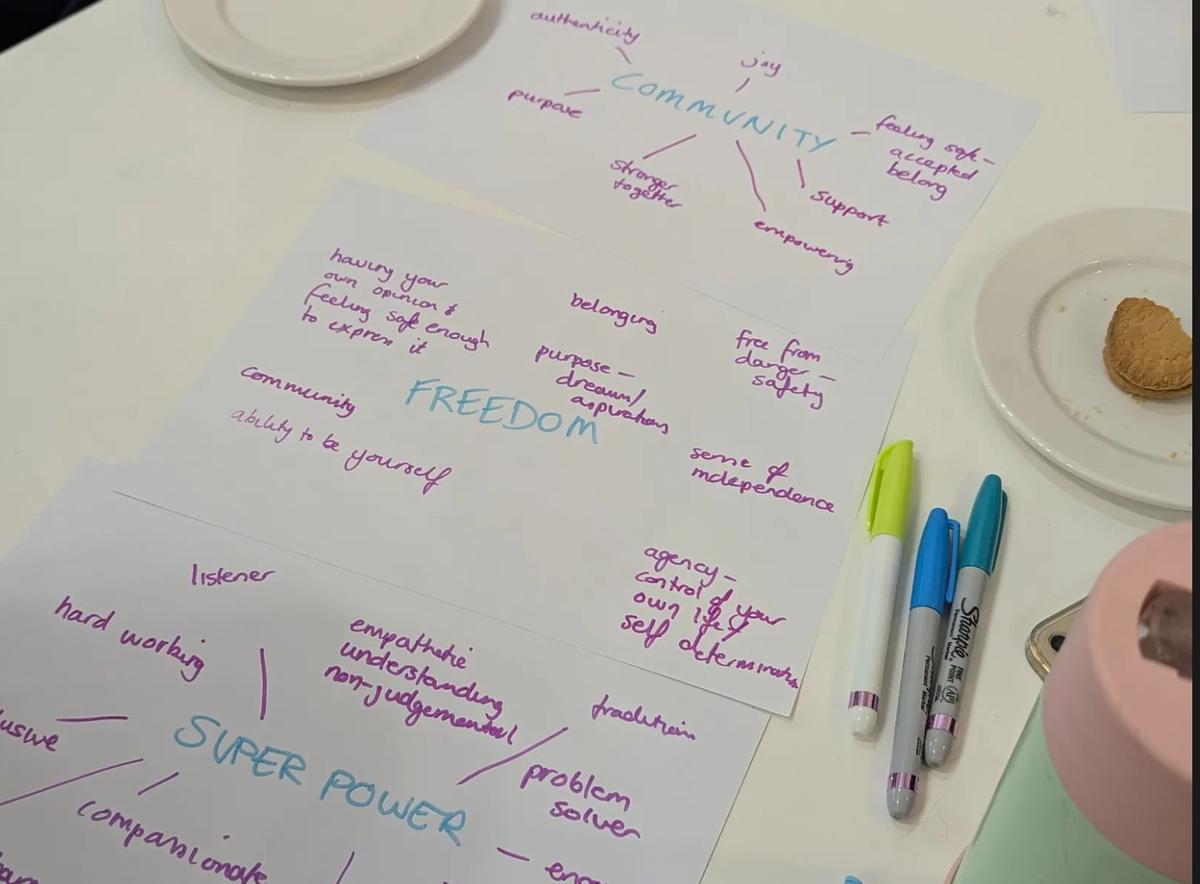 authenticity
joy
COMMUNITY
purpose
feeling safe-
accepted
belong
stronger
together
support
empowering
having your
own opinion &
feeling safe enough
to express it
belonging
purpose -
dreams/
aspirations
free from
danger -
safety
FREEDOM
community
ability to be yourself
sense of
independence
agency -
control of your
own life/
self determination
listener
hard working
empathetic
understanding
non-judgemental
tradition
SUPER POWER
problem
solver
compassionate
Sharpie
FINE
POINT